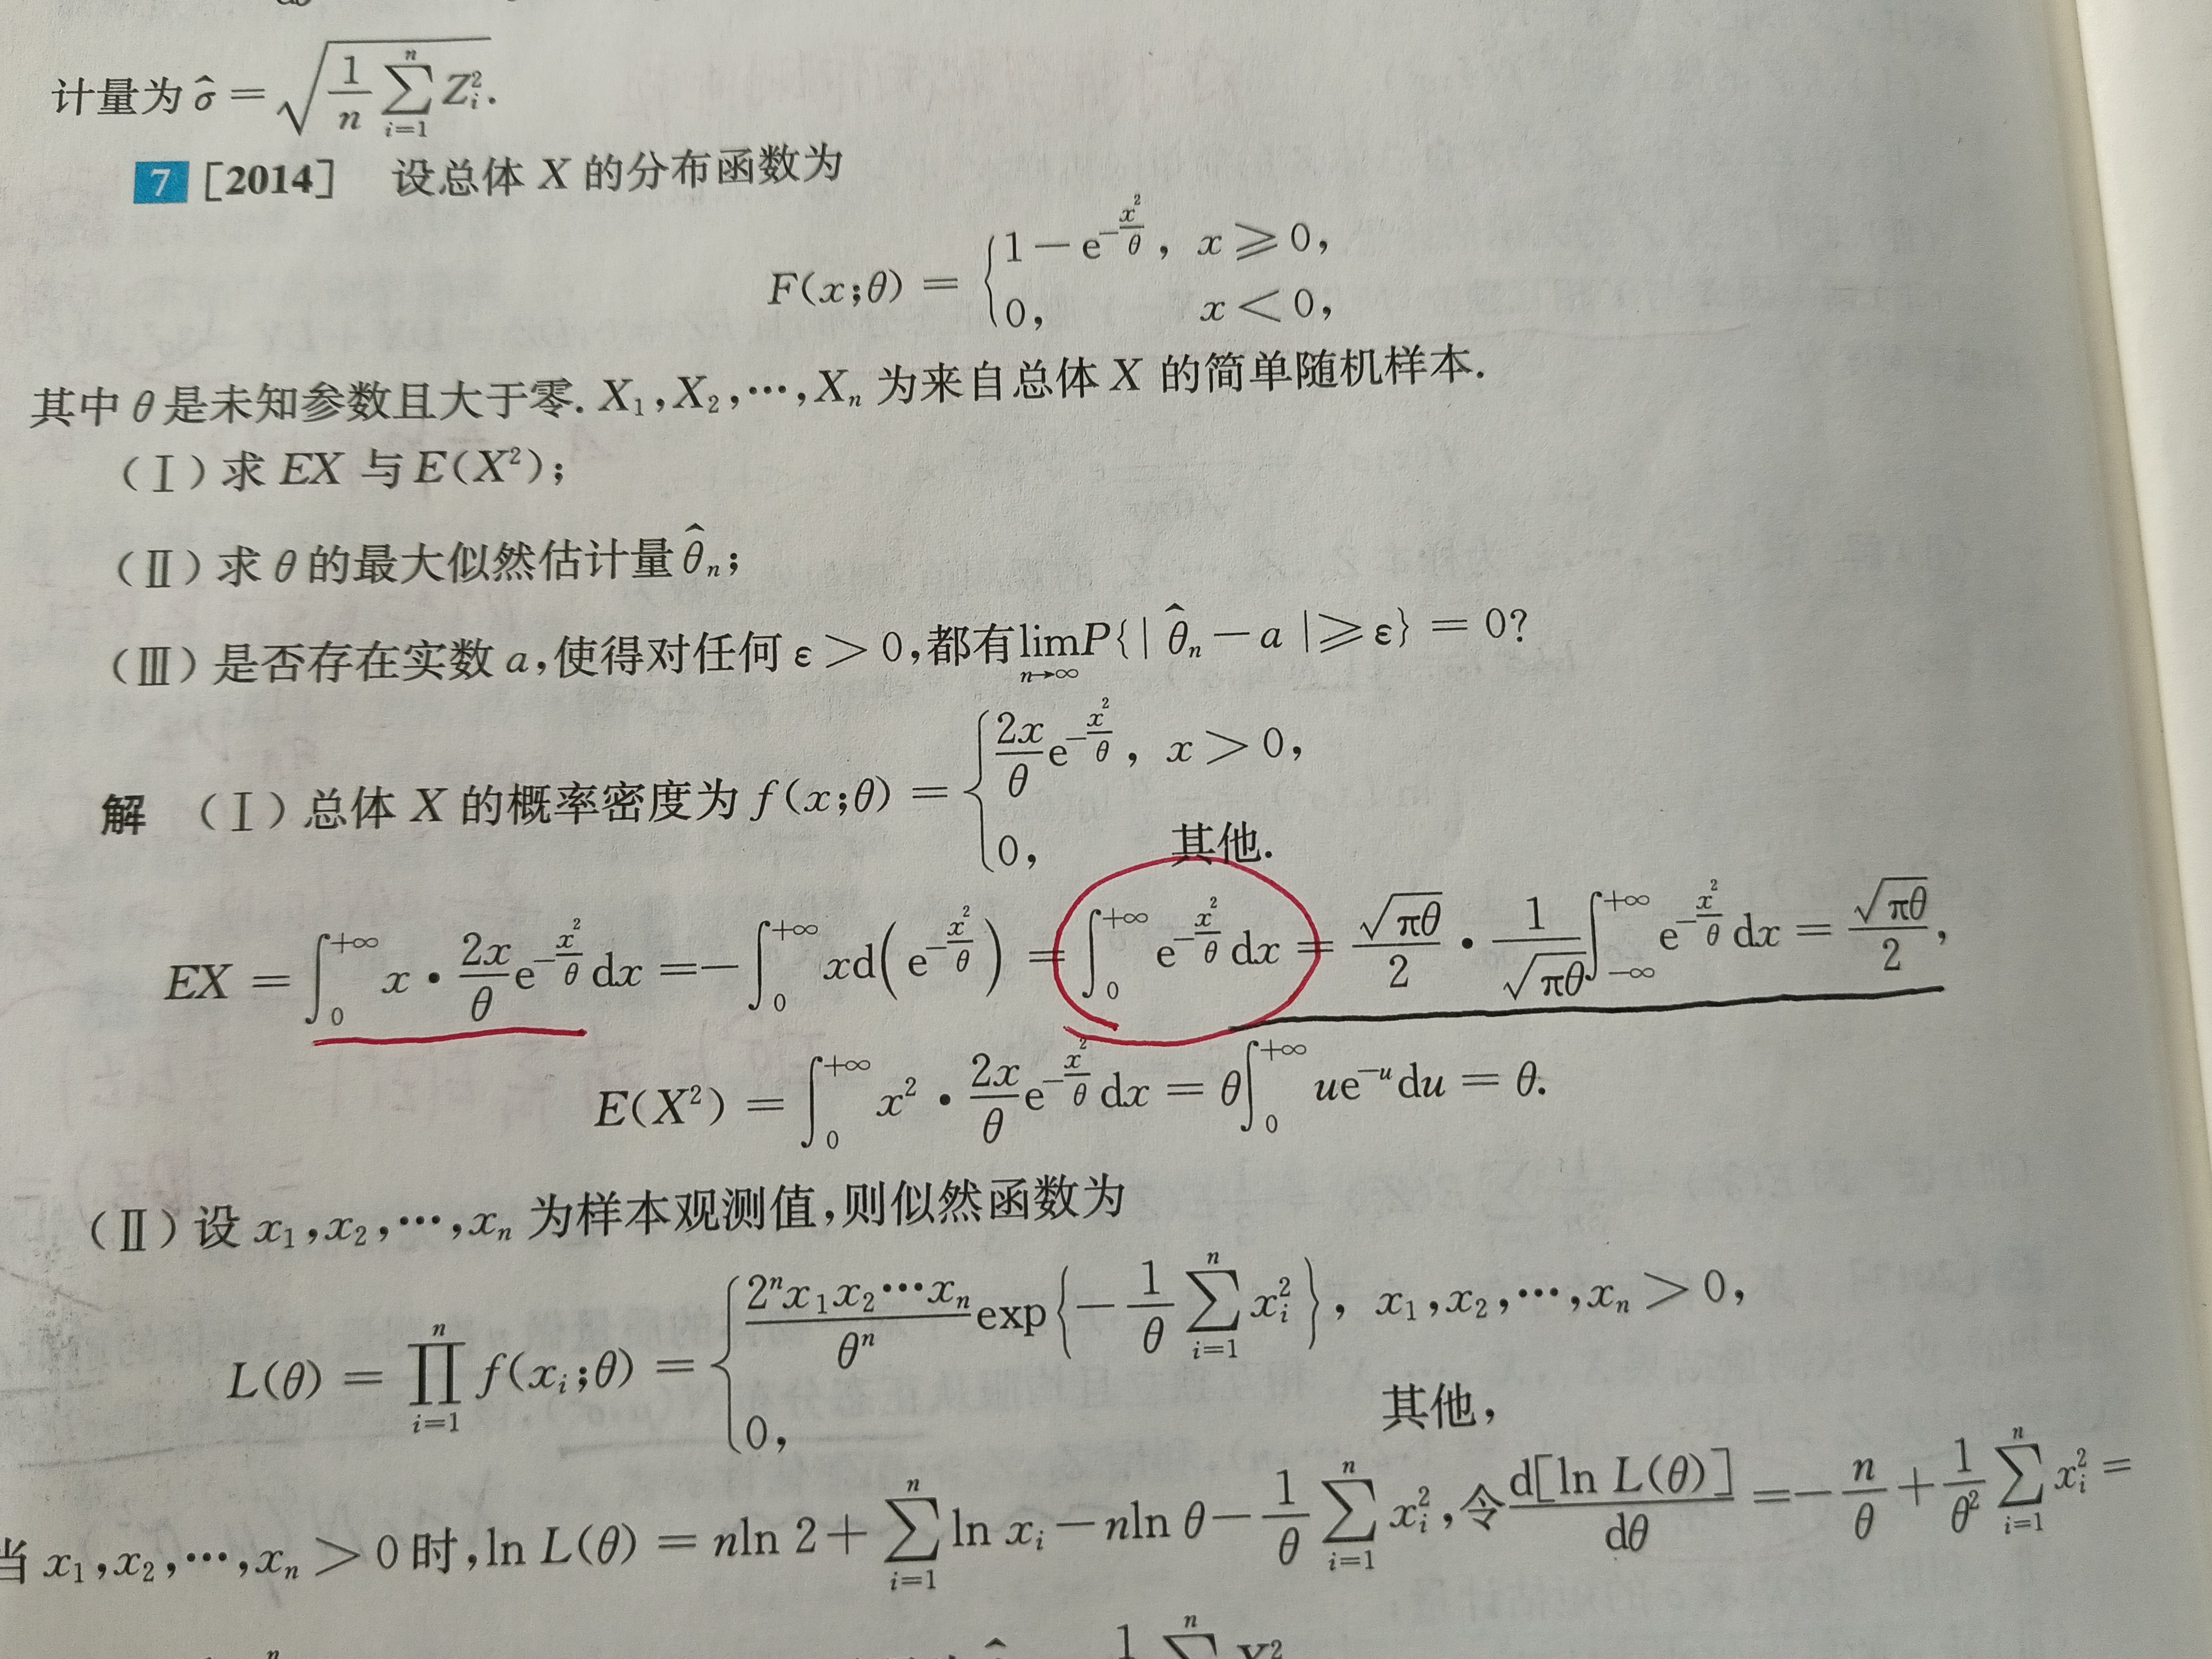 计量为 σ̂ = √(1/n ∑_{i=1}^{n} Z_i²).
7 [2014] 设总体 X 的分布函数为
F(x;θ) = { 1－e^{－x²/θ}, x ⩾ 0,
0, x < 0,
其中 θ 是未知参数且大于零. X₁,X₂,⋯,Xₙ 为来自总体 X 的简单随机样本.
(Ⅰ) 求 EX 与 E(X²);
(Ⅱ) 求 θ 的最大似然估计量 θ̂ₙ;
(Ⅲ) 是否存在实数 a,使得对任何 ε > 0,都有 lim_{n→∞} P{| θ̂ₙ － a |⩾ ε} = 0?
解 (Ⅰ) 总体 X 的概率密度为 f(x;θ) = { (2x/θ)e^{－x²/θ}, x > 0,
0, 其他.
EX = ∫_0^{+∞} x · (2x/θ)e^{－x²/θ} dx =－∫_0^{+∞} xd(e^{－x²/θ}) = ∫_0^{+∞} e^{－x²/θ} dx = √(πθ)/2 · 1/√(πθ) ∫_{－∞}^{+∞} e^{－x²/θ} dx = √(πθ)/2,
E(X²) = ∫_0^{+∞} x² · (2x/θ)e^{－x²/θ} dx = θ∫_0^{+∞} ue^{－u} du = θ.
(Ⅱ) 设 x₁,x₂,⋯,xₙ 为样本观测值,则似然函数为
L(θ) = ∏_{i=1}^{n} f(x_i;θ) = { (2ⁿx₁x₂⋯xₙ/θⁿ) exp{－(1/θ) ∑_{i=1}^{n} x_i²}, x₁,x₂,⋯,xₙ > 0,
0, 其他,
当 x₁,x₂,⋯,xₙ > 0 时,ln L(θ) = nln 2＋∑_{i=1}^{n} ln x_i－nln θ－(1/θ) ∑_{i=1}^{n} x_i²,令 d[ln L(θ)]/dθ =－n/θ＋(1/θ²) ∑_{i=1}^{n} x_i² =